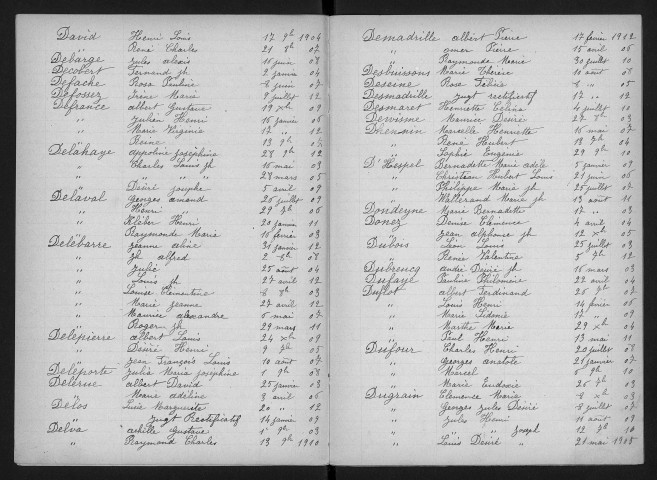 David Henri Louis 17 9b 1904
" René Charles 21 8b 07
Debarge Jules alexis 16 juin 08
Decobert Fernand jh 2 janvier 04
Defache Rosa Pauline 8 juin 07
Defossez Irène Maria 9 juillet 12
Defrance albert Gustave 19 xb 09
" Julien Henri 15 janvier 06
" Marie Virginie 17 " 12
" Reine 13 9b 07
Delahaye appoline joséphine 28 9b 12
" Charles Louis jh 16 mai 03
" " " " 28 mars 05
" Désiré joseph 5 avril 09
Delaval Georges amand 26 juillet 09
" Henri " 29 7b 06
" Kléber Henri 20 janvier 11
" Raymonde Marie 16 février 03
Delebarre jeanne aline 31 janvier 12
" jh alfred 2 8b 08
" Julie 25 août 04
" Louis jh 27 avril 12
" Louise Clémentine 8 9b 03
" Marie jeanne 27 avril 12
" Maurice alexandre 6 mai 07
" Roger jh 29 mars 11
Delepierre albert Louis 24 xb 09
" Désiré Henri 9 7b 05
" jean François Louis 10 août 07
Deleporte Julia Maria joséphine 1 9b 08
Delerue albert David 25 janvier 03
" Marie adeline 3 avril 06
Delos Lucie Marguerite 20 " 12
" jugt Rectificatif 14 janvier 09
Delva achille Gustave 1 8b 03
" Raymond Charles 13 7b 1910
Demadrille albert Pierre 17 février 1912
" omer Pierre 15 avril 06
" Raymonde Marie 30 juillet 10
Desbuissons Marie Thérèse 10 août 08
Desseine Rosa Félina 8 " 05
Desmadrille jugt rectificatif 17 " 12
Desmaret Henriette Célina 4 juillet 10
Devisme Maurice Désiré 27 8b 03
Dhennin Marcelle Henriette 16 mai 07
" René Hubert 13 7b 04
" Sophie Eugénie 29 9b 10
D'Hespel Bernadette Marie adèle 5 janvier 09
" Christian Hubert Louis 21 juin 06
" Philippe Marie jh 25 juillet 07
" Wallerand Marie jh 13 août 11
Dondeyne Marie Bernadette 17 " 03
Donez Denise Clémence 4 avril 04
" jean alphonse jh 12 xb 05
Dubois Léon Louis 25 juillet 03
" Renée Valentine 5 7b 12
Dubrencq andré Désiré jh 16 mars 03
Dufaye Pauline Philomène 22 avril 04
Duflot albert Ferdinand 26 7b 03
" Louis Henri 14 février 06
" Maria Sidonie 17 " 09
" Marthe Marie 29 xb 04
" Paul Henri 13 mai 11
Dufour Charles Henri 20 juillet 08
" Georges anatole 21 janvier 07
" Marcel 5 9b 10
" Marie Eudoxie 26 7b 03
Dugrain Clémence Marie 8 xb 03
" Georges Jules Désiré 8 juillet 07
" Jules Henri 11 août 09
" " Joseph 12 7b 10
" Louis Désiré " 21 mai 1905